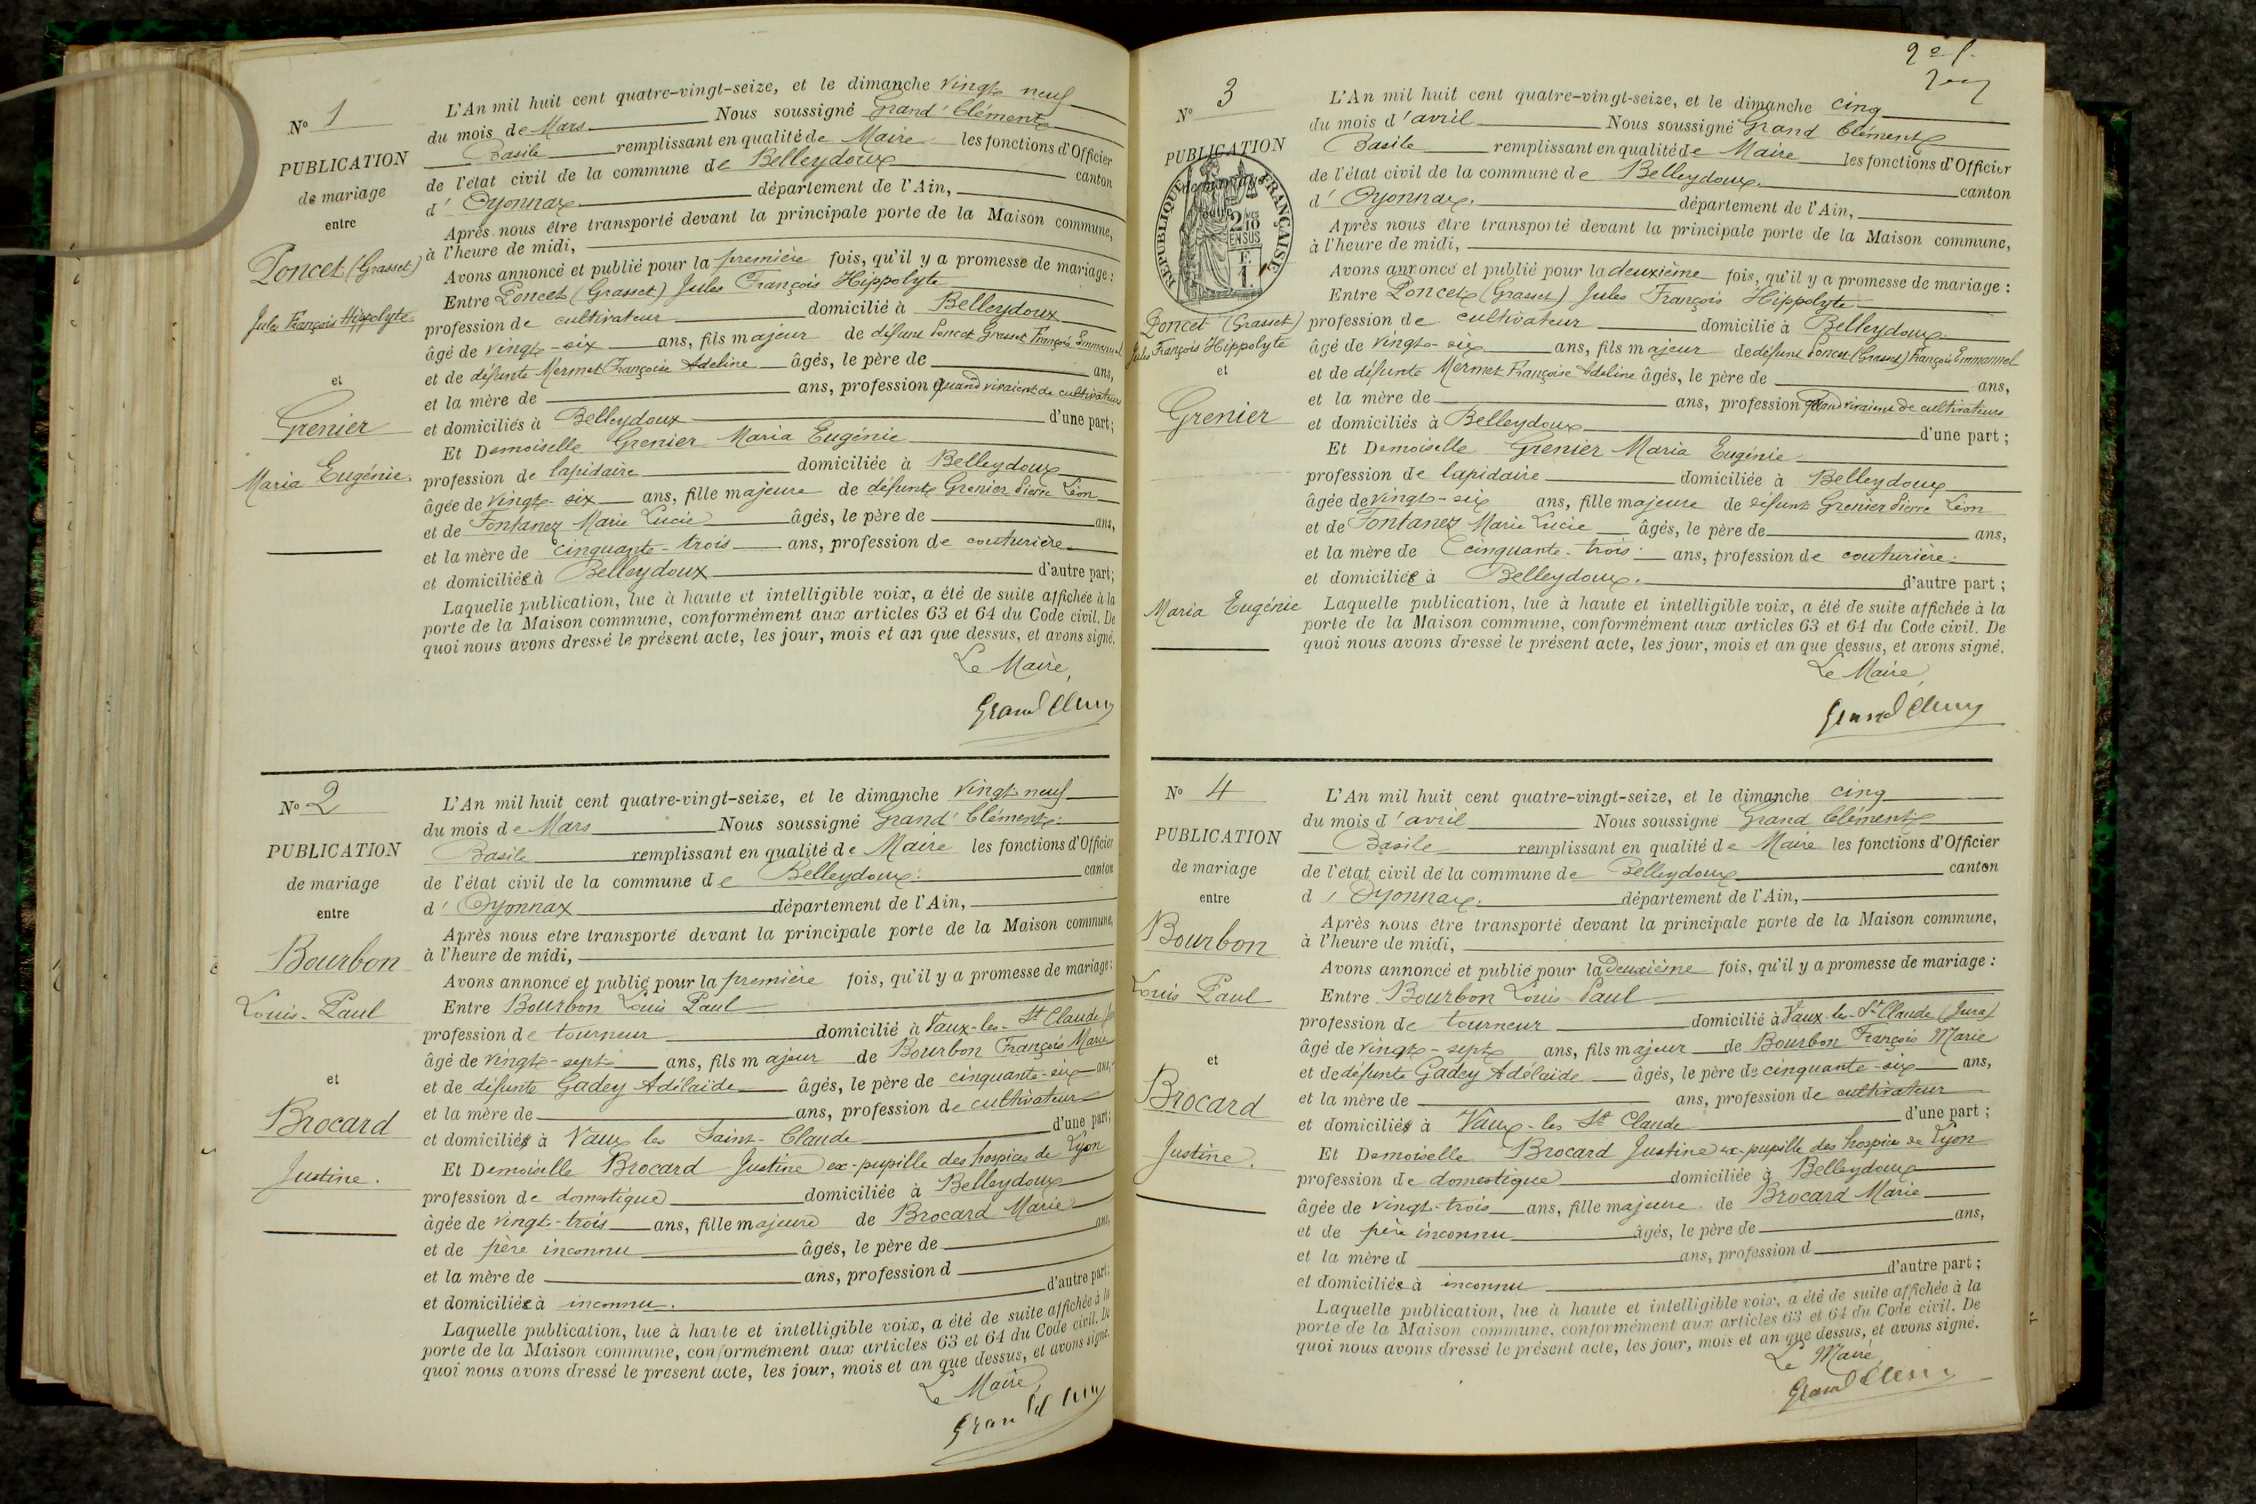 Nº 1
PUBLICATION
de mariage
entre
Poncet (Grasset)
Jules François Hippolyte
et
Grenier
Maria Eugénie.
L'An mil huit cent quatre-vingt-seize, et le dimanche vingt neuf
du mois de Mars Nous soussigné Grand' Clément
Basile remplissant en qualité de Maire les fonctions d'Officier
de l'état civil de la commune de Belleydoux canton
d' Oyonnax département de l'Ain,
Après nous être transporté devant la principale porte de la Maison commune,
à l'heure de midi,
Avons annoncé et publié pour la première fois, qu'il y a promesse de mariage :
Entre Poncet (Grasset) Jules François Hippolyte
profession de cultivateur domicilié à Belleydoux
âgé de vingt-six ans, fils majeur de défunt Poncet Grasset François Emmanuel
et de défunte Mermet Françoise Adeline âgés, le père de ans,
et la mère de ans, profession quand vivaient de cultivateurs
et domiciliés à Belleydoux d'une part ;
Et Demoiselle Grenier Maria Eugénie
profession de lapidaire domiciliée à Belleydoux
âgée de vingt-six ans, fille majeure de défunt Grenier Pierre Léon
et de Fontanez Marie Lucie âgés, le père de ans,
et la mère de cinquante-trois ans, profession de couturière
et domiciliée à Belleydoux d'autre part ;
Laquelle publication, lue à haute et intelligible voix, a été de suite affichée à la
porte de la Maison commune, conformément aux articles 63 et 64 du Code civil. De
quoi nous avons dressé le présent acte, les jour, mois et an que dessus, et avons signé.
Le Maire,
Grand Clem
Nº 2
PUBLICATION
de mariage
entre
Bourbon
Louis-Paul
et
Brocard
Justine.
L'An mil huit cent quatre-vingt-seize, et le dimanche vingt-neuf
du mois de Mars Nous soussigné Grand' Clément
Basile remplissant en qualité de Maire les fonctions d'Officier
de l'état civil de la commune de Belleydoux canton
d' Oyonnax département de l'Ain,
Après nous être transporté devant la principale porte de la Maison commune,
à l'heure de midi,
Avons annoncé et publié pour la première fois, qu'il y a promesse de mariage :
Entre Bourbon Louis Paul
profession de tourneur domicilié à Vaux-les-St Claude
âgé de vingt-sept ans, fils majeur de Bourbon François Marie
et de défunte Gadey Adélaïde âgés, le père de cinquante-six ans,
et la mère de ans, profession de cultivateur
et domiciliés à Vaux les Saint-Claude d'une part ;
Et Demoiselle Brocard Justine ex-pupille des hospices de Lyon
profession de domestique domiciliée à Belleydoux
âgée de vingt-trois ans, fille majeure de Brocard Marie
et de père inconnu âgés, le père de ans,
et la mère de ans, profession d
et domiciliée à inconnu. d'autre part ;
Laquelle publication, lue à haute et intelligible voix, a été de suite affichée à la
porte de la Maison commune, conformément aux articles 63 et 64 du Code civil. De
quoi nous avons dressé le présent acte, les jour, mois et an que dessus, et avons signé.
Le Maire,
Grand Clem
2e f.
Nº 3
PUBLICATION
de mariage
entre
RÉPUBLIQUE FRANÇAISE
Poncet (Grasset)
Jules François Hippolyte
et
Grenier
Maria Eugénie
L'An mil huit cent quatre-vingt-seize, et le dimanche cinq
du mois d'avril Nous soussigné Grand Clément
Basile remplissant en qualité de Maire les fonctions d'Officier
de l'état civil de la commune de Belleydoux. canton
d' Oyonnax. département de l'Ain,
Après nous être transporté devant la principale porte de la Maison commune,
à l'heure de midi,
Avons annoncé et publié pour la deuxième fois, qu'il y a promesse de mariage :
Entre Poncet (Grasset) Jules François Hippolyte
profession de cultivateur domicilié à Belleydoux
âgé de vingt-six ans, fils majeur de défunt Poncet (Grasset) François Emmanuel
et de défunte Mermet Françoise Adeline âgés, le père de ans,
et la mère de ans, profession quand vivaient de cultivateurs
et domiciliés à Belleydoux d'une part ;
Et Demoiselle Grenier Maria Eugénie
profession de lapidaire domiciliée à Belleydoux
âgée de vingt-six ans, fille majeure de défunt Grenier Pierre Léon
et de Fontanez Marie Lucie âgés, le père de ans,
et la mère de cinquante-trois ans, profession de couturière
et domiciliée à Belleydoux. d'autre part ;
Laquelle publication, lue à haute et intelligible voix, a été de suite affichée à la
porte de la Maison commune, conformément aux articles 63 et 64 du Code civil. De
quoi nous avons dressé le présent acte, les jour, mois et an que dessus, et avons signé.
Le Maire,
Grand Clem
Nº 4
PUBLICATION
de mariage
entre
Bourbon
Louis Paul
et
Brocard
Justine.
L'An mil huit cent quatre-vingt-seize, et le dimanche cinq
du mois d'avril Nous soussigné Grand Clément
Basile remplissant en qualité de Maire les fonctions d'Officier
de l'état civil de la commune de Belleydoux canton
d' Oyonnax. département de l'Ain,
Après nous être transporté devant la principale porte de la Maison commune,
à l'heure de midi,
Avons annoncé et publié pour la deuxième fois, qu'il y a promesse de mariage :
Entre Bourbon Louis Paul
profession de tourneur domicilié à Vaux-les-St Claude (Jura)
âgé de vingt-sept ans, fils majeur de Bourbon François Marie
et de défunte Gadey Adélaïde âgés, le père de cinquante-six ans,
et la mère de ans, profession de cultivateur
et domiciliés à Vaux-les St Claude d'une part ;
Et Demoiselle Brocard Justine ex-pupille des hospices de Lyon
profession de domestique domiciliée à Belleydoux
âgée de vingt-trois ans, fille majeure de Brocard Marie
et de père inconnu âgés, le père de ans,
et la mère d ans, profession d
et domiciliée à inconnu d'autre part ;
Laquelle publication, lue à haute et intelligible voix, a été de suite affichée à la
porte de la Maison commune, conformément aux articles 63 et 64 du Code civil. De
quoi nous avons dressé le présent acte, les jour, mois et an que dessus, et avons signé.
Le Maire,
Grand Clem